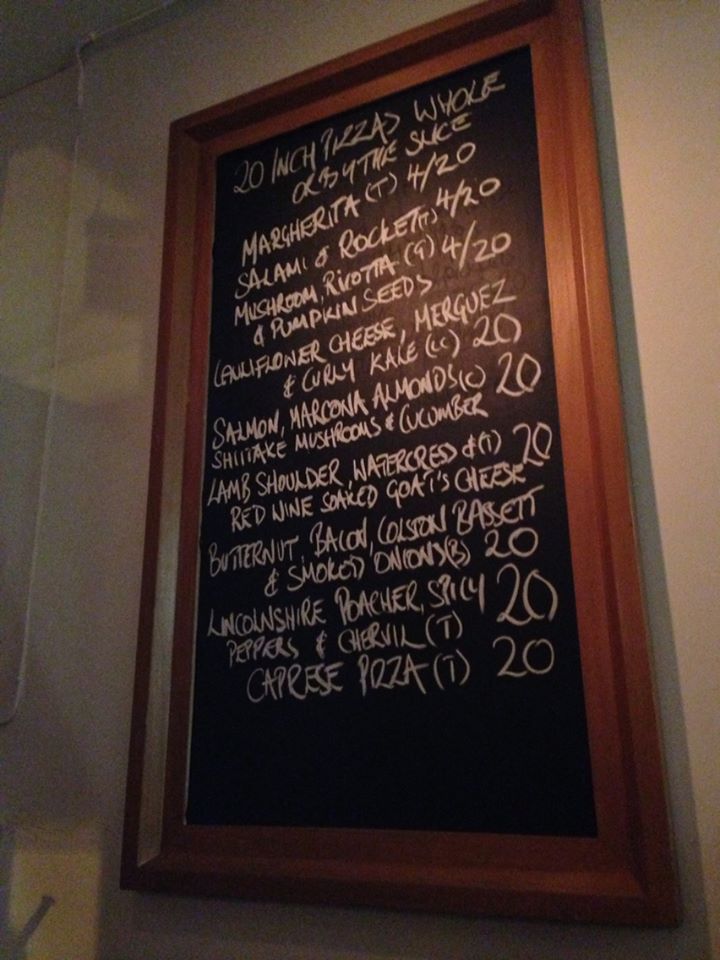 20 INCH PIZZAS WHOLE
OR BY THE SLICE
MARGHERITA (T) 4/20
SALAMI & ROCKET (T) 4/20
MUSHROOM, RICOTTA (G) 4/20
& PUMPKIN SEEDS
CAULIFLOWER CHEESE, MERGUEZ
& CURLY KALE (CC) 20
SALMON, MARCONA ALMONDS (C) 20
SHIITAKE MUSHROOMS & CUCUMBER
LAMB SHOULDER, WATERCRESS & (T) 20
RED WINE SOAKED GOAT'S CHEESE
BUTTERNUT, BACON, COLSTON BASSETT
& SMOKED ONIONS (B) 20
LINCOLNSHIRE POACHER, SPICY 20
PEPPERS & CHERVIL (T)
CAPRESE PIZZA (T) 20